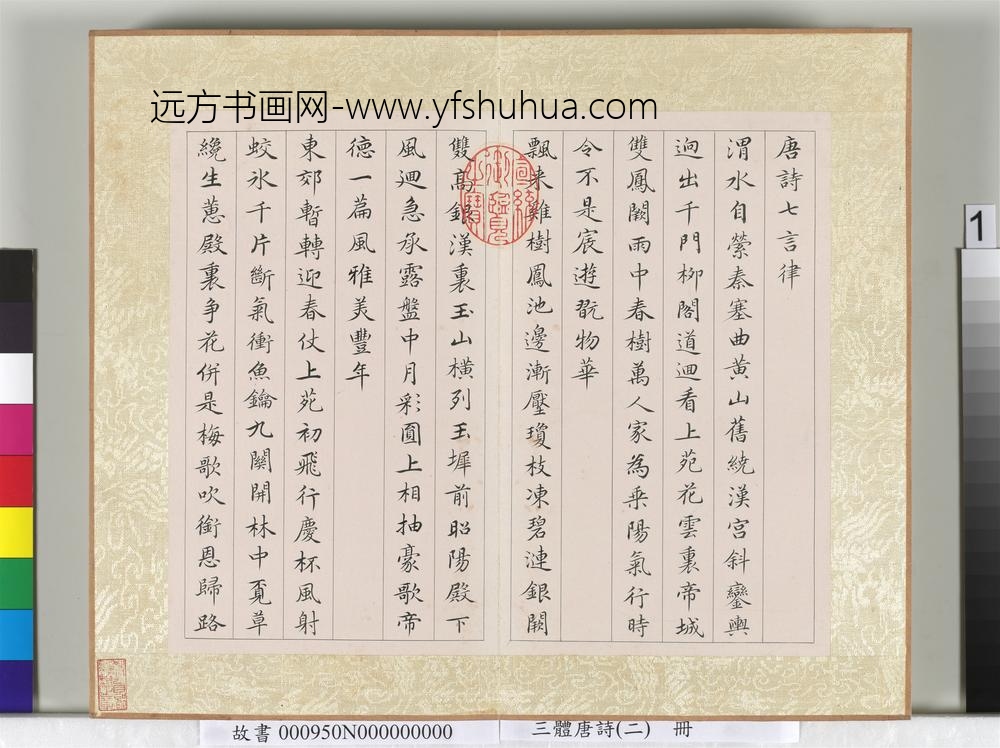 远方书画网-www.yfshuhua.com
唐詩七言律
渭水自縈秦塞曲黄山舊繞漢宮斜鑾輿
逈出千門柳閣道迴看上苑花雲裏帝城
雙鳳闕雨中春樹萬人家為乗陽氣行時
令不是宸遊翫物華
飄来雞樹鳳池邊漸壓瓊枝凍碧漣銀闕
雙高銀漢裏玉山橫列玉墀前昭陽殿下
風迴急承露盤中月彩圓上相抽豪歌帝
德一篇風雅美豐年
東郊暫轉迎春仗上苑初飛行慶杯風射
蛟氷千片斷氣衝魚鑰九關開林中覔草
纔生蕙殿裏争花併是梅歌吹銜恩歸路
1
故書 000950N000000000
三體唐詩(二) 冊